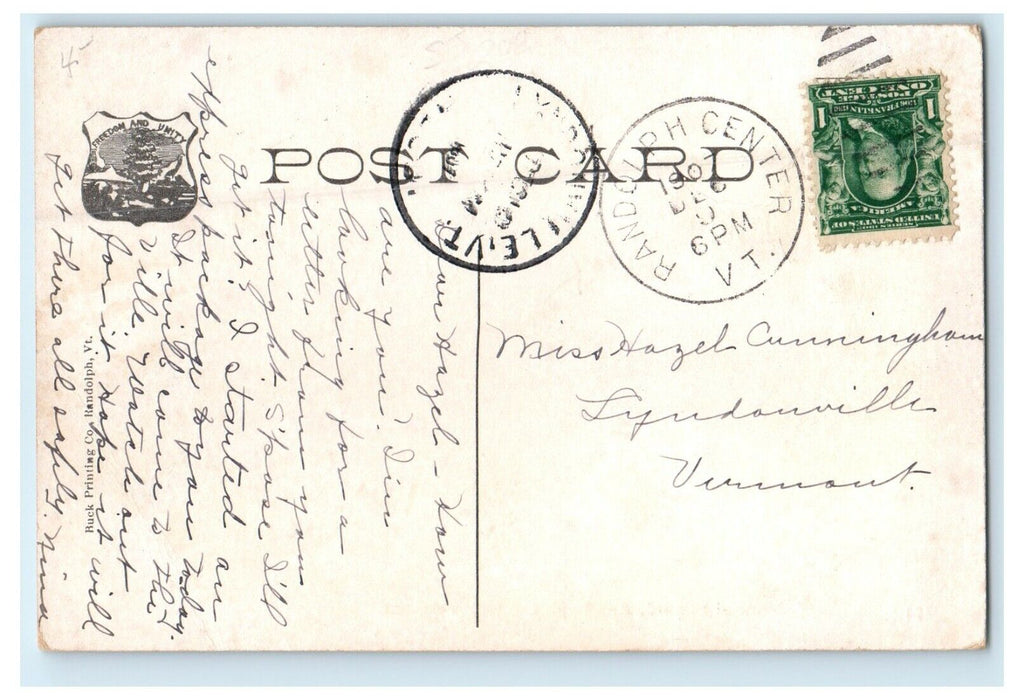 POST CARD
FREEDOM AND UNITY
RANDOLPH CENTER
6 PM
VT.
LYNDONVILLE, VT.
1
1
POSTAGE
ONE CENT
SERIES 1902
UNITED STATES OF
AMERICA
Miss Hazel Cunningham
Lyndonville
Vermont.
Dear Hazel - How
are you. I'm
looking for a
letter from you
tonight. S'pose I'll
get it. I started an
express package to you today.
It will come to the
Ville. Watch out
for it. Hope it will
get there all safely. Nina
Buck Printing Co., Randolph, Vt.